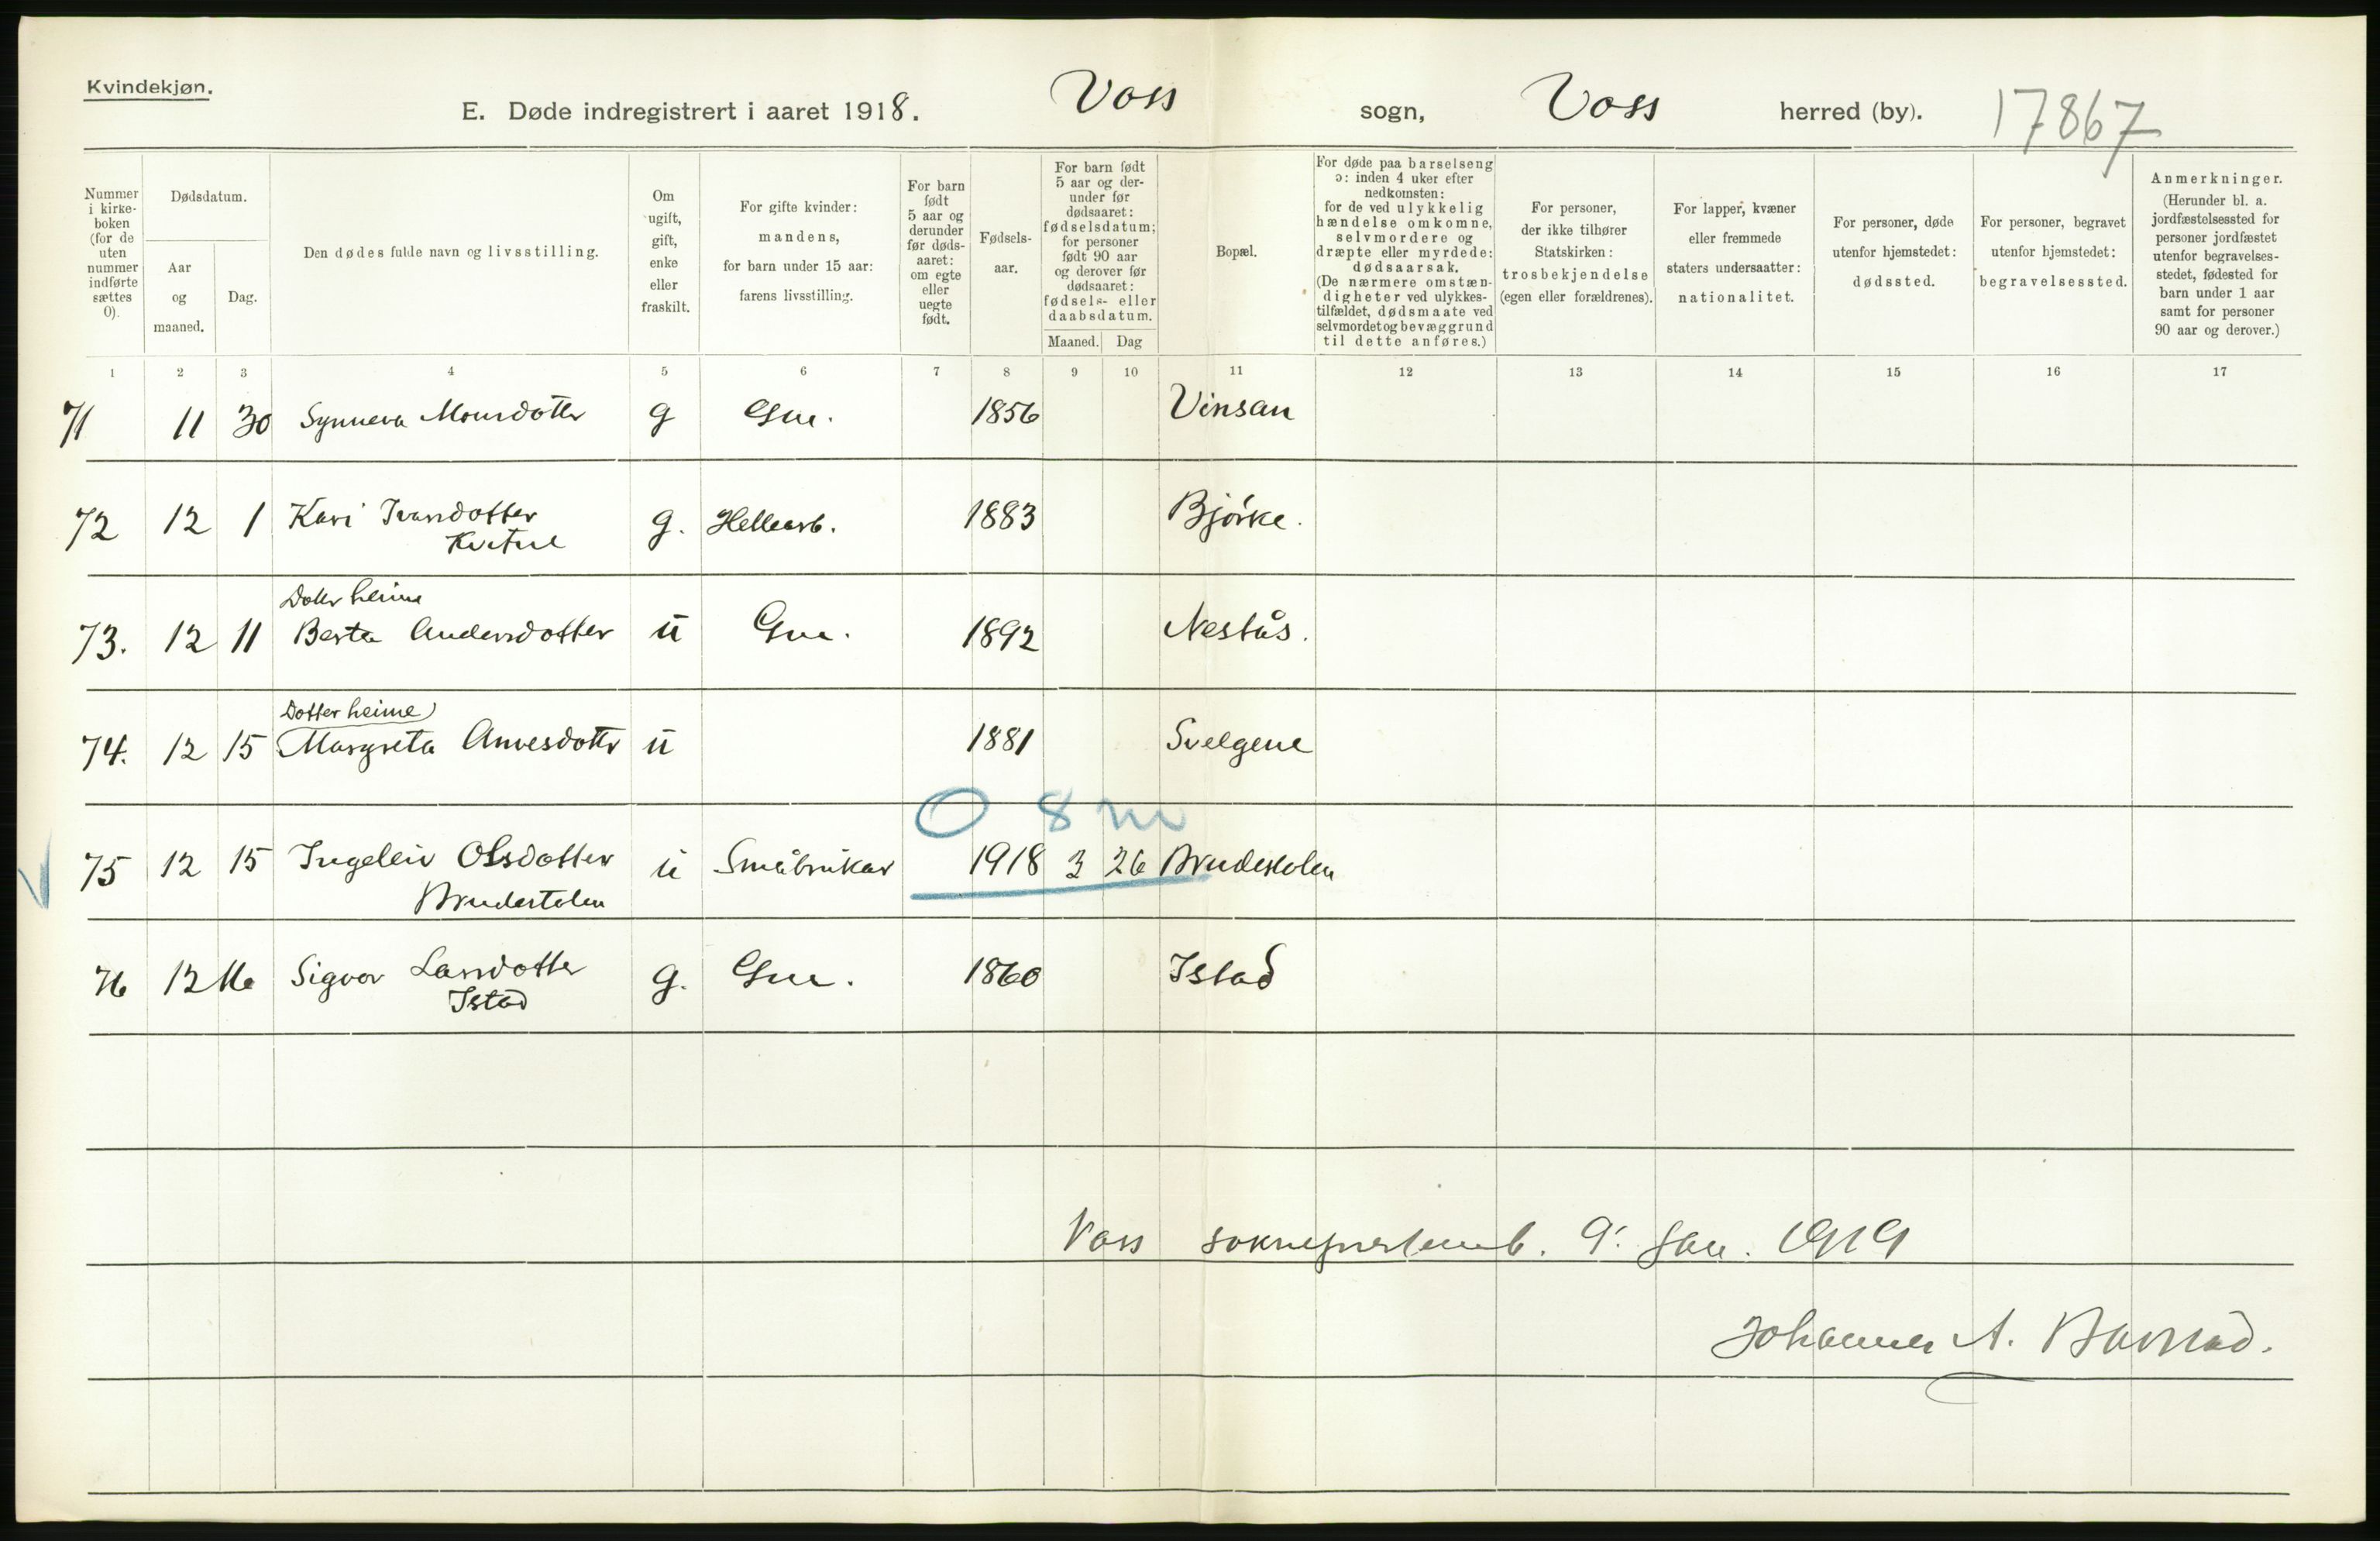 Kvindekjøn.
E. Døde indregistrert i aaret 1918.
Voss sogn, Voss herred (by).
17867
Nummer i kirke-boken (for de uten nummer indførte sættes 0).
Dødsdatum.
Aar og maaned.
Dag.
Den dødes fulde navn og livsstilling.
Om ugift, gift, enke eller fraskilt.
For gifte kvinder: mandens, for barn under 15 aar: farens livsstilling.
For barn født 5 aar og derunder før døds-aaret: om egte eller uegte født.
Fødsels-aar.
For barn født 5 aar og der-under før dødsaaret: fødselsdatum; for personer født 90 aar og derover før dødsaaret: fødsels- eller daabsdatum.
Maaned. Dag
Bopæl.
For døde paa barselseng ɔ: inden 4 uker efter nedkomsten: for de ved ulykkelig hændelse omkomne, selvmordere og dræpte eller myrdede: dødsaarsak. (De nærmere omstæn-digheter ved ulykkes-tilfældet, dødsmaate ved selvmordet og bevæggrund til dette anføres.)
For personer, der ikke tilhører Statskirken: trosbekjendelse (egen eller forældrenes).
For lapper, kvæner eller fremmede staters undersaatter: nationalitet.
For personer, døde utenfor hjemstedet: dødssted.
For personer, begravet utenfor hjemstedet: begravelsessted.
Anmerkninger. (Herunder bl. a. jordfæstelsessted for personer jordfæstet utenfor begravelses-stedet, fødested for barn under 1 aar samt for personer 90 aar og derover.)
1 2 3 4 5 6 7 8 9 10 11 12 13 14 15 16 17
71 11 30 Synneva Monsdotter g Gm. 1856 Vinsan
72 12 1 Kari Ivarsdotter g. Hellearb. 1883 Bjørke.
Dotter heime
73. 12 11 Berta Andersdotter u Gm. 1892 Nestås.
Dotter heime
74. 12 15 Margreta Anvesdotter u 1881 Svelgene
0 8 m
75 12 15 Ingeleiv Olsdotter u Småbrukar 1918 3 26 Brudestolen
Brudestolen
76 12 16 Sigvor Larsdotter g. Gm. 1860 Istad
Istad
Voss sokneprestemb. 9. Jan. 1919
Johannes A.